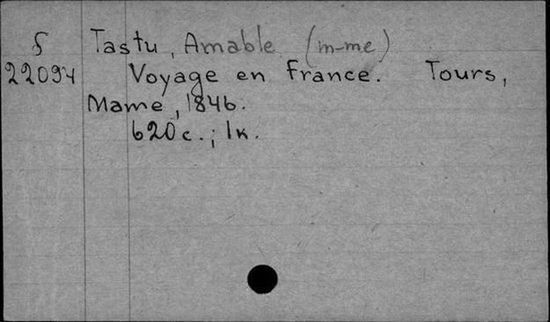 S Tastu, Amable (m-me)
22094 Voyage en France. Tours,
Mame, 1846.
620 c.; 1к.